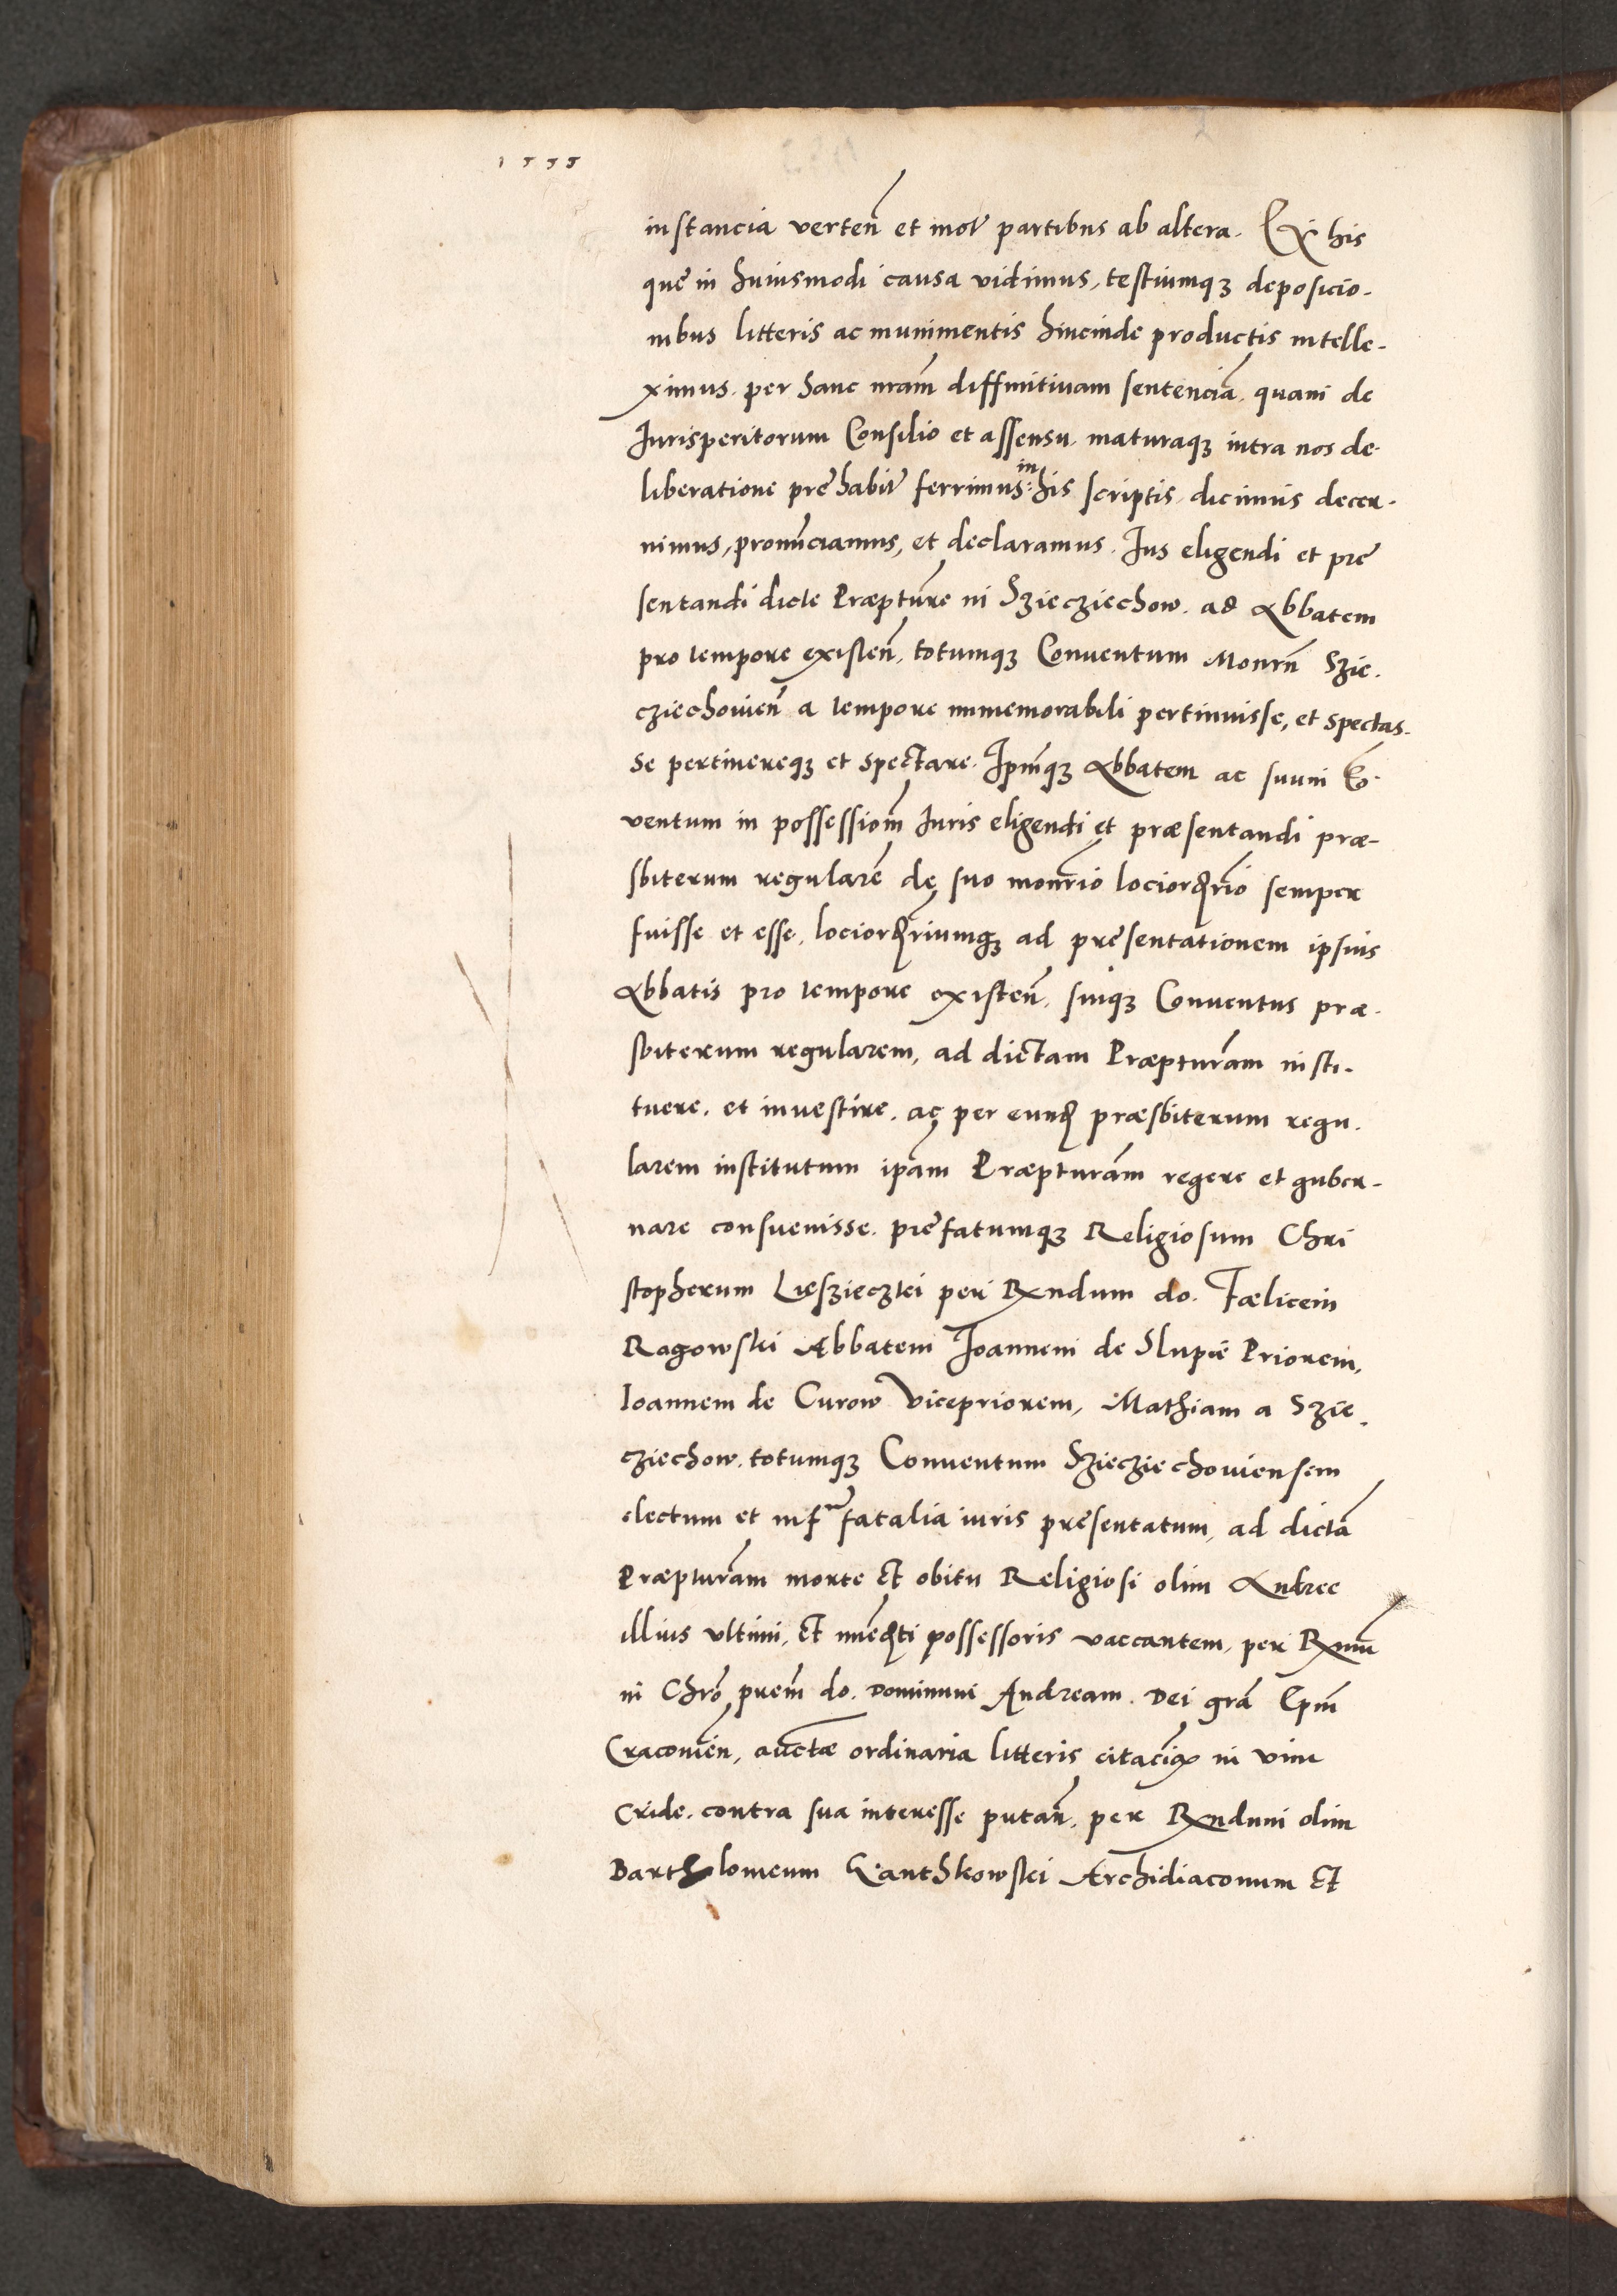 1555
instancia verteñ et mot̃ partibus ab altera. Ex his
que in huiusmodi causa vidimus, testiumqꝫ deposicio-
nibus litteris ac munimentis hincinde productis intelle-
ximus. per hanc nr̃am diffinitivam sentenciã. quam de
Jurisperitorum Consilio et assensu, maturaqꝫ intra nos de-
liberatione prehabit̃ ferrimus in his scriptis dicimus decer-
nimus, pronũciamus, et declaramus. Jus eligendi et pre
sentandi dicte Præptur̃e in Szieczciechow. ad Abbatem
pro tempore existeñ, totumqꝫ Conventum Monr̃ij Szie-
cziechovieñ a tempore immemorabili pertinuisse, et spectas-
se pertinereqꝫ et spectare. Ip̃mqꝫ Abbatem ac suum Co-
ventum in possessiom̃ Juris eligendi et præsentandi præ-
sbiterum regularẽ de suo monr̃io lociordr̃io semper
fuisse et esse, lociordr̃iumqꝫ ad presentationem ipsius
Abbatis pro tempore existeñ, suiqꝫ Conventus præ-
sbiterum regularem, ad dictam Præptur̃am insti-
tuere. et investire. ac per eund̃ præsbiterum regu-
larem institutum ip̃am Præptur̃am regere et guber-
nare consuevisse. prefatumqꝫ Religiosum Chri
stopherum Liesziecztei per Rx̃ndum do. Fælicem
Rogowski Abbatem Joannem de Slupie Priorem,
Ioannem de Curow Vicepriorem, Mathiam a Szie-
cziechow. totumqꝫ Conventum Szieczciechoviensem
electum et infra fatalia iuris presentatum, ad dictã
Præptur̃am morte et obitu Religiosi olim Andree
illius ultimi, et im̃ed̃ti possessoris vaccantem, per Rx̃mũ
in Chr̃o pr̃em do. Dominum Andream. Dei gr̃a Ep̃m
Cracovieñ, auct̃æ ordinaria litteris citac̃iũ in vim
Cride. contra sua interesse putañ. per Rx̃ndum olim
Bartholomeum Ganthkowski Archidiaconum et